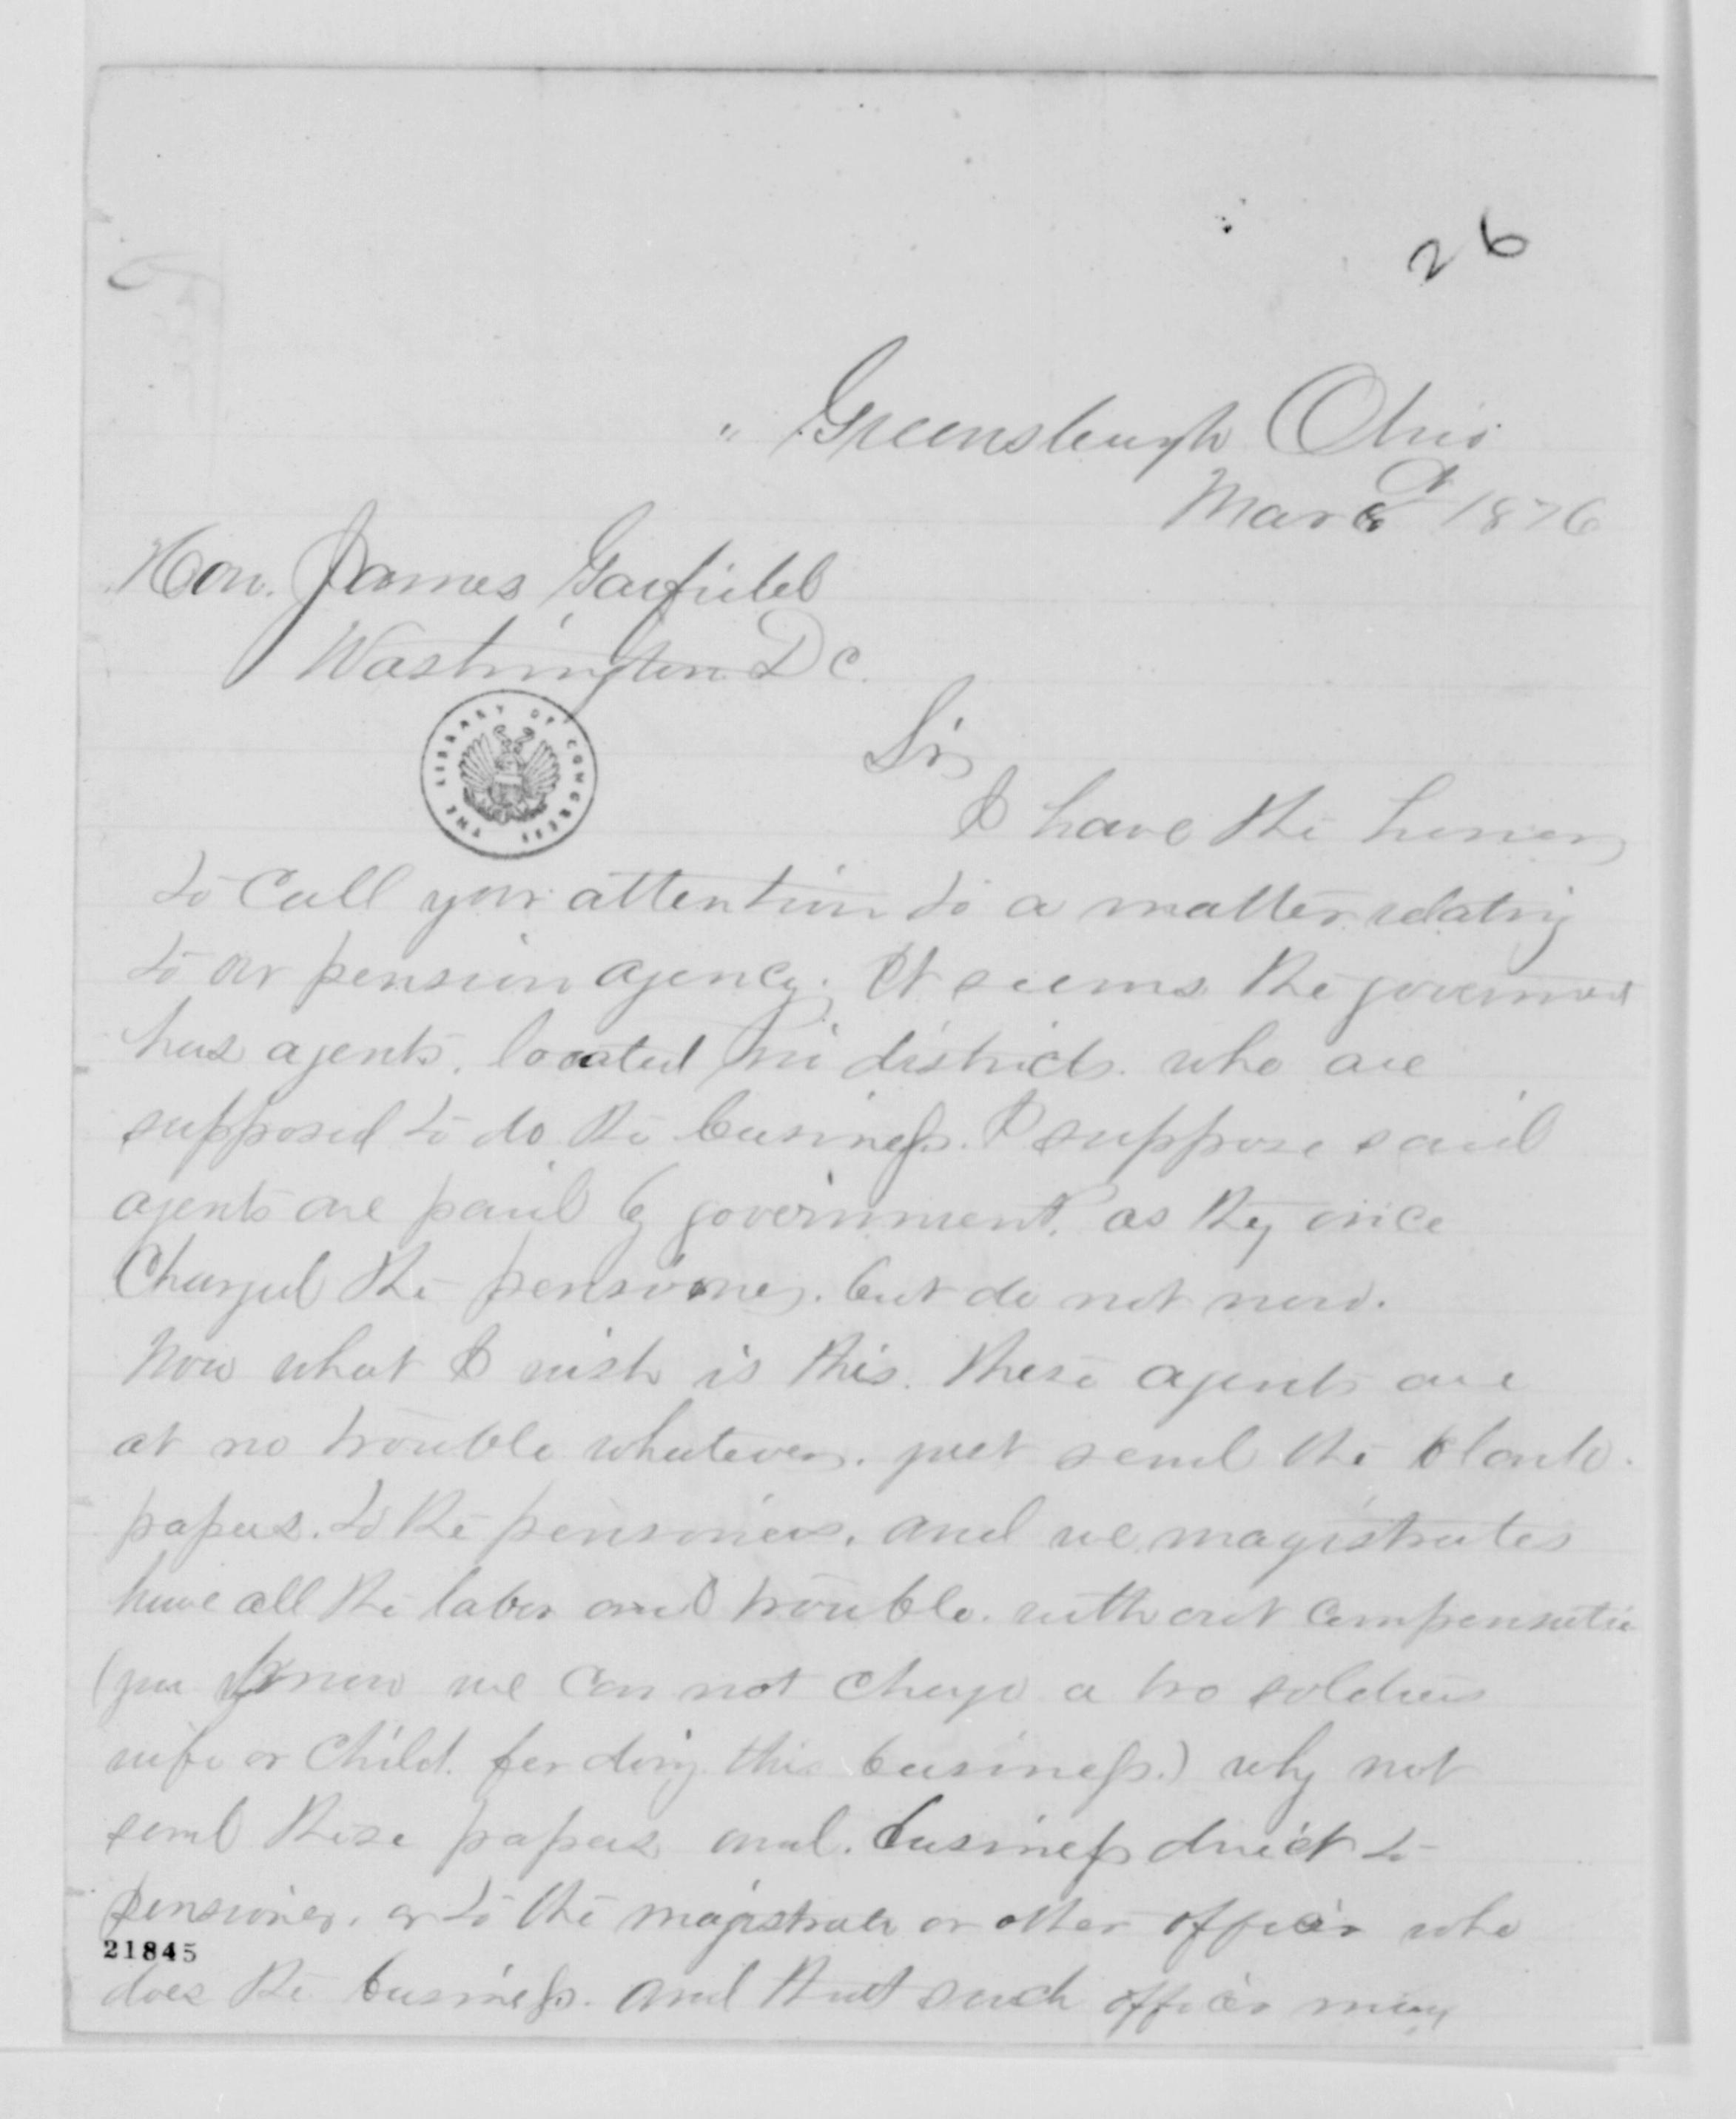 26
Greensburgh Ohio
Mar 1876
Hon. James Garfield
Washington D C.
THE LIBRARY OF CONGRESS
Sir
I have the honor
to Call your attention to a matter relating
to our pension agency. It seems the government
has agents, located in districts who are
supposed to do the business. I suppose said
agents are paid by government, as they once
Charged the pensioner, but do not now.
Now what I wish is this. these agents are
at no trouble whatever. just send the blank
papers. to the pensioners, and we magistrates
have all the labor and trouble. without compensation
(you know we can not charge a soldiers
wife or Child. for doing this business.) why not
send these papers and. business direct to
pensioner, or to the magistrate or other officer who
21845
does the business. and that such officer may